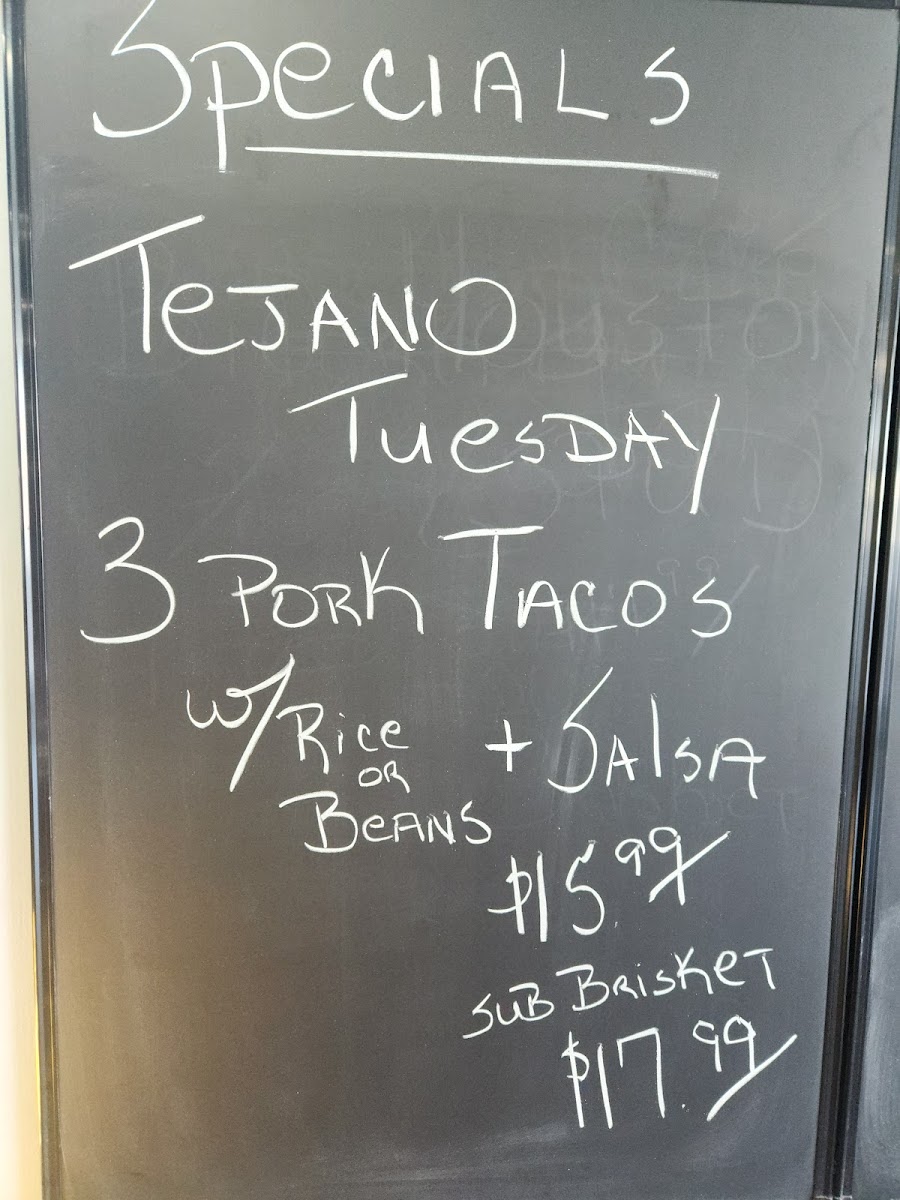 SpeciALS
TeJANO
TuesDAY
3 PORK TACOS
w/ Rice + SAlsA
OR
BeANS
$15.99
SUB BRisKeT
$17.99